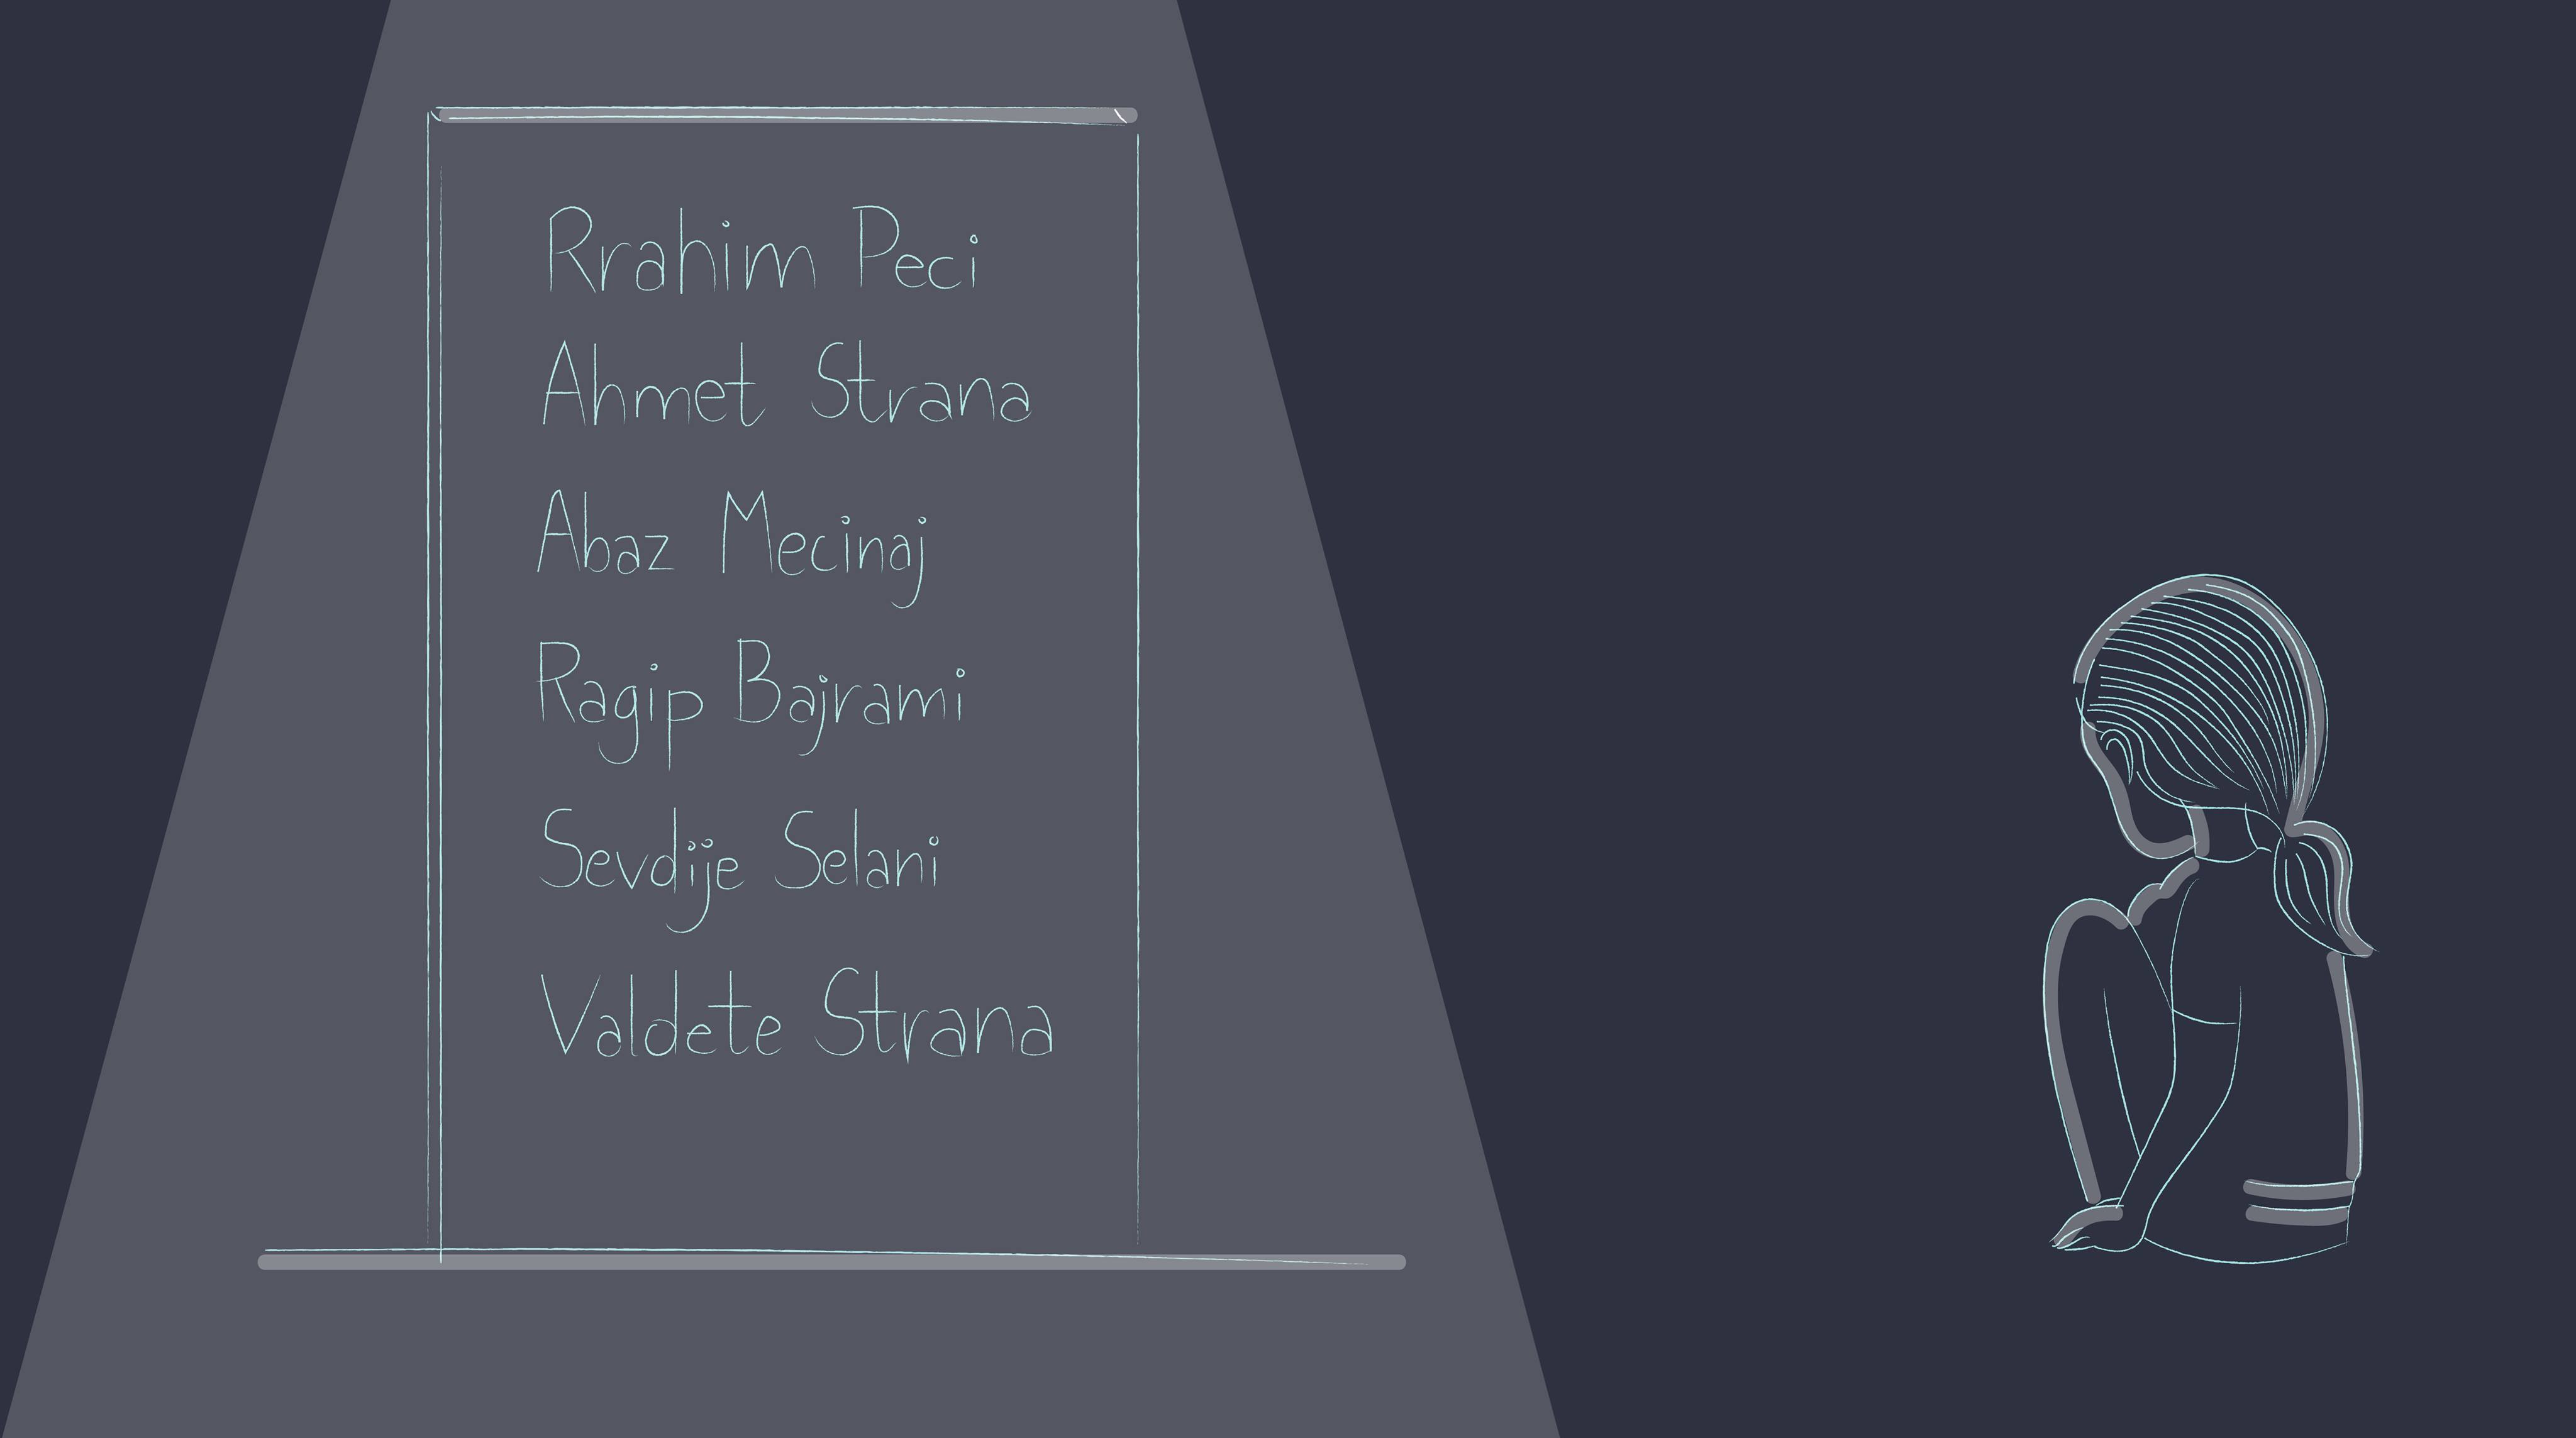 Rrahim Peci
Ahmet Strana
Abaz Mecinaj
Ragip Bajrami
Sevdije Selani
Valdete Strana